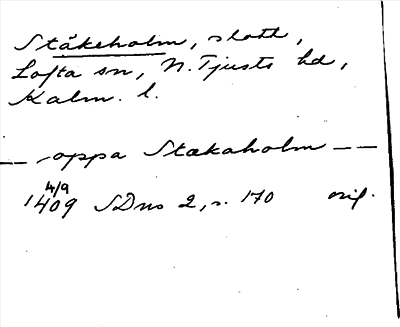 Ståkeholm, slott,
Lofta sn, N. Tjusts hd,
Kalm. l.
— — oppa Stækaholm — —
4/9
1409 SDns 2, s. 170 orig.